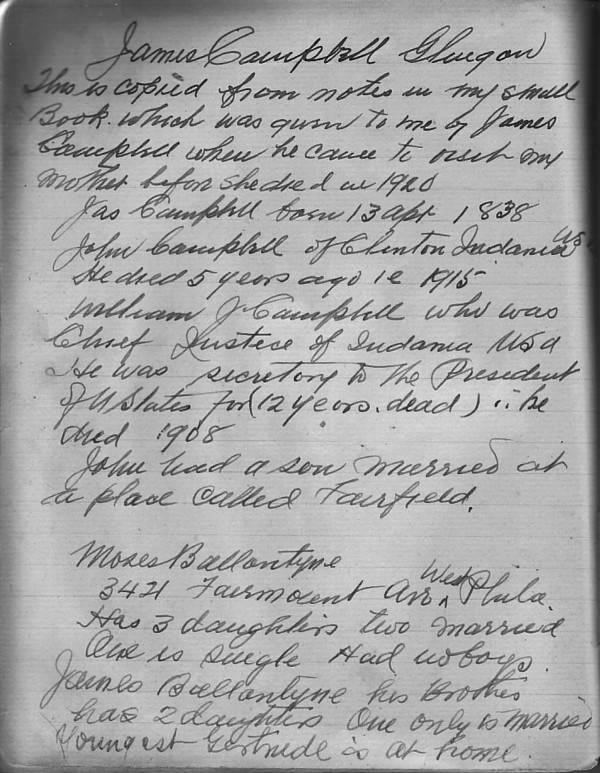 James Campbell Glasgow
This is copied from notes in my small
Book. which was given to me by James
Campbell when he came to visit my
mother before she died in 1920
Jas Campbell born 13 Apr 1838
John Campbell of Clinton Indania US.
He died 5 years ago ie 1915
William J Campbell who was
Chief Justice of Indania USA
He was secretary to the President
of U States for (12 years. dead) ∴ he
died 1908
John had a son married at
a place called Fairfield.
Moses Ballantyne
3421 Fairmount Ave West Phila.
Has 3 daughters two married
One is single Had no boys.
James Ballantyne his Brother
has 2 daughters One only is married
Youngest Gertrude is at home.